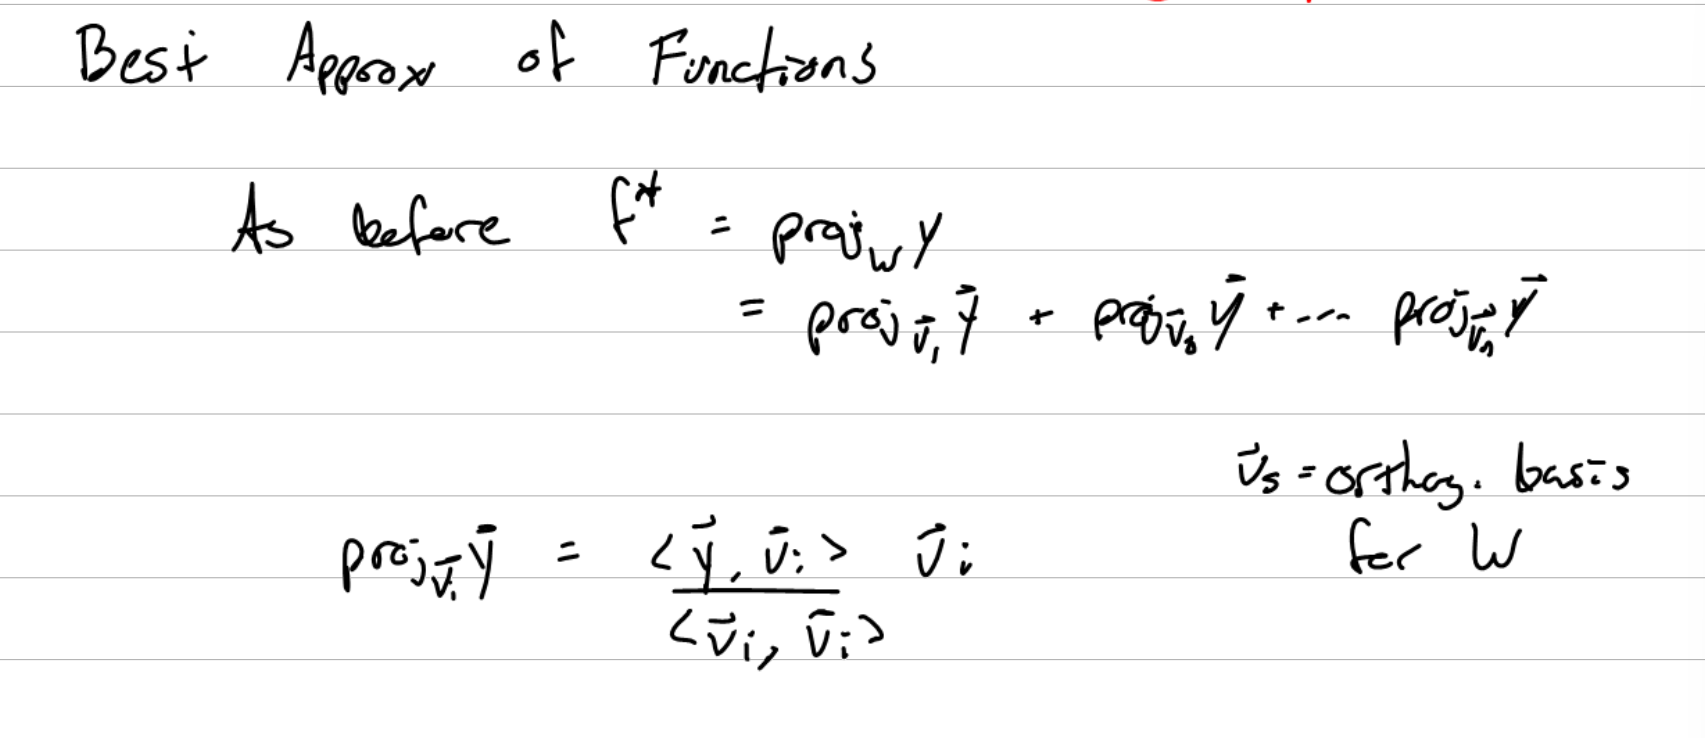 Best Approx of Functions
As before f* = proj_W y
= proj_v⃗₁ y⃗ + proj_v⃗₂ y⃗ + ... proj_v⃗ₙ y⃗
v⃗s = orthog. basis
for W
proj_v⃗ᵢ y⃗ = <y⃗, v⃗ᵢ> v⃗ᵢ
<v⃗ᵢ, v⃗ᵢ>